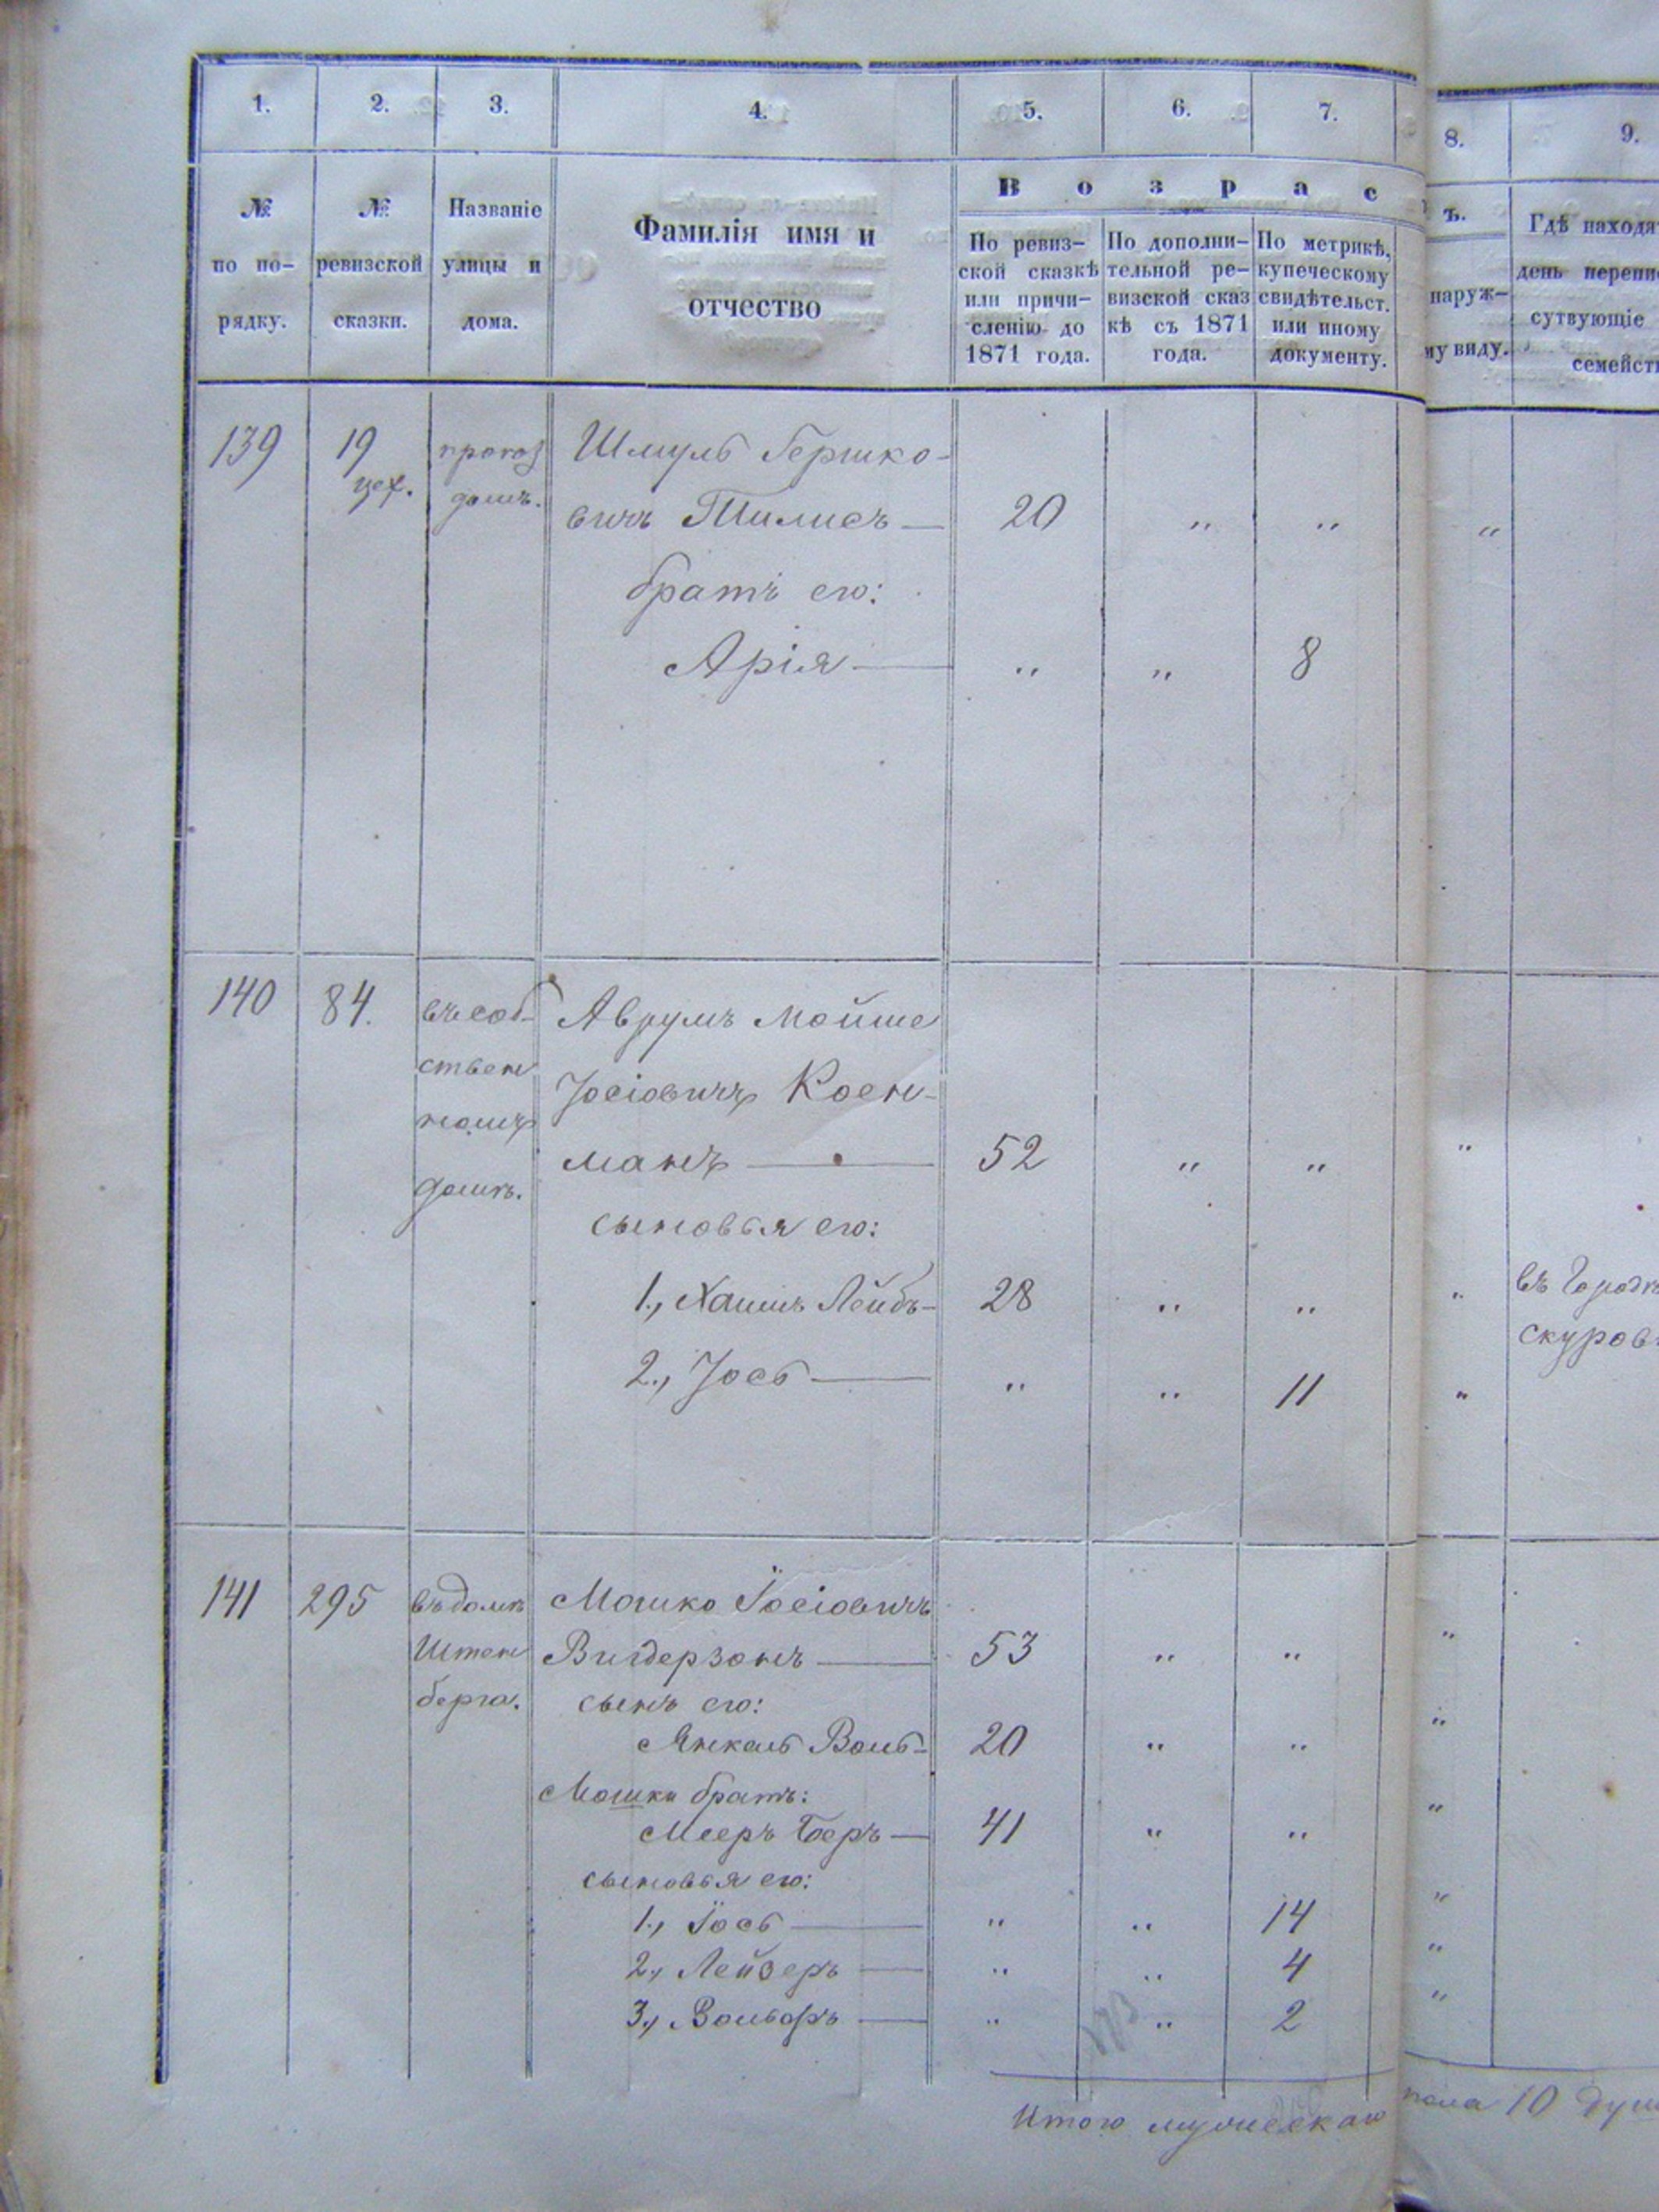 1.
2.
3.
4.
5.
6.
7.
8.
9.
№ по по-рядку.
№ ревизской сказки.
Названіе улицы и дома.
Фамилія имя и отчество
В о з р а с
ъ.
По ревиз-
ской сказкѣ
или причи-
сленію до
1871 года.
По дополни-
тельной ре-
визской сказ
кѣ съ 1871
года.
По метрикѣ,
купеческому
свидѣтельст.
или иному
документу.
наруж-
му виду.
Гдѣ находя
день перепи
сутвующіе
семейст
139 19 Шмуль Гершко-
цех. домъ.
вичъ Тилисъ — 20 " " "
братъ его:
Арія — " " 8
140 84. въ соб- Аврумъ Мойше
ствен
Іосіовичъ Коен-
номъ
манъ — 52 " " "
домѣ.
сыновья его:
1., Хаимъ Лейбъ- 28 " " "
въ Город
скуров
2., Іось — " " 11 "
141 295 въ домѣ Мошко Іосіовичъ
Штен Вигдерзонъ — 53 " " "
берга. сынъ его:
Янкель Воль- 20 " " "
Мошки братъ:
Мееръ Беръ — 41 " " "
сыновья его:
1., Іось — " " 14 "
2., Лейзеръ — " " 4 "
3., Вольфъ — " " 2 "
Итого мужескаго пола 10 душ